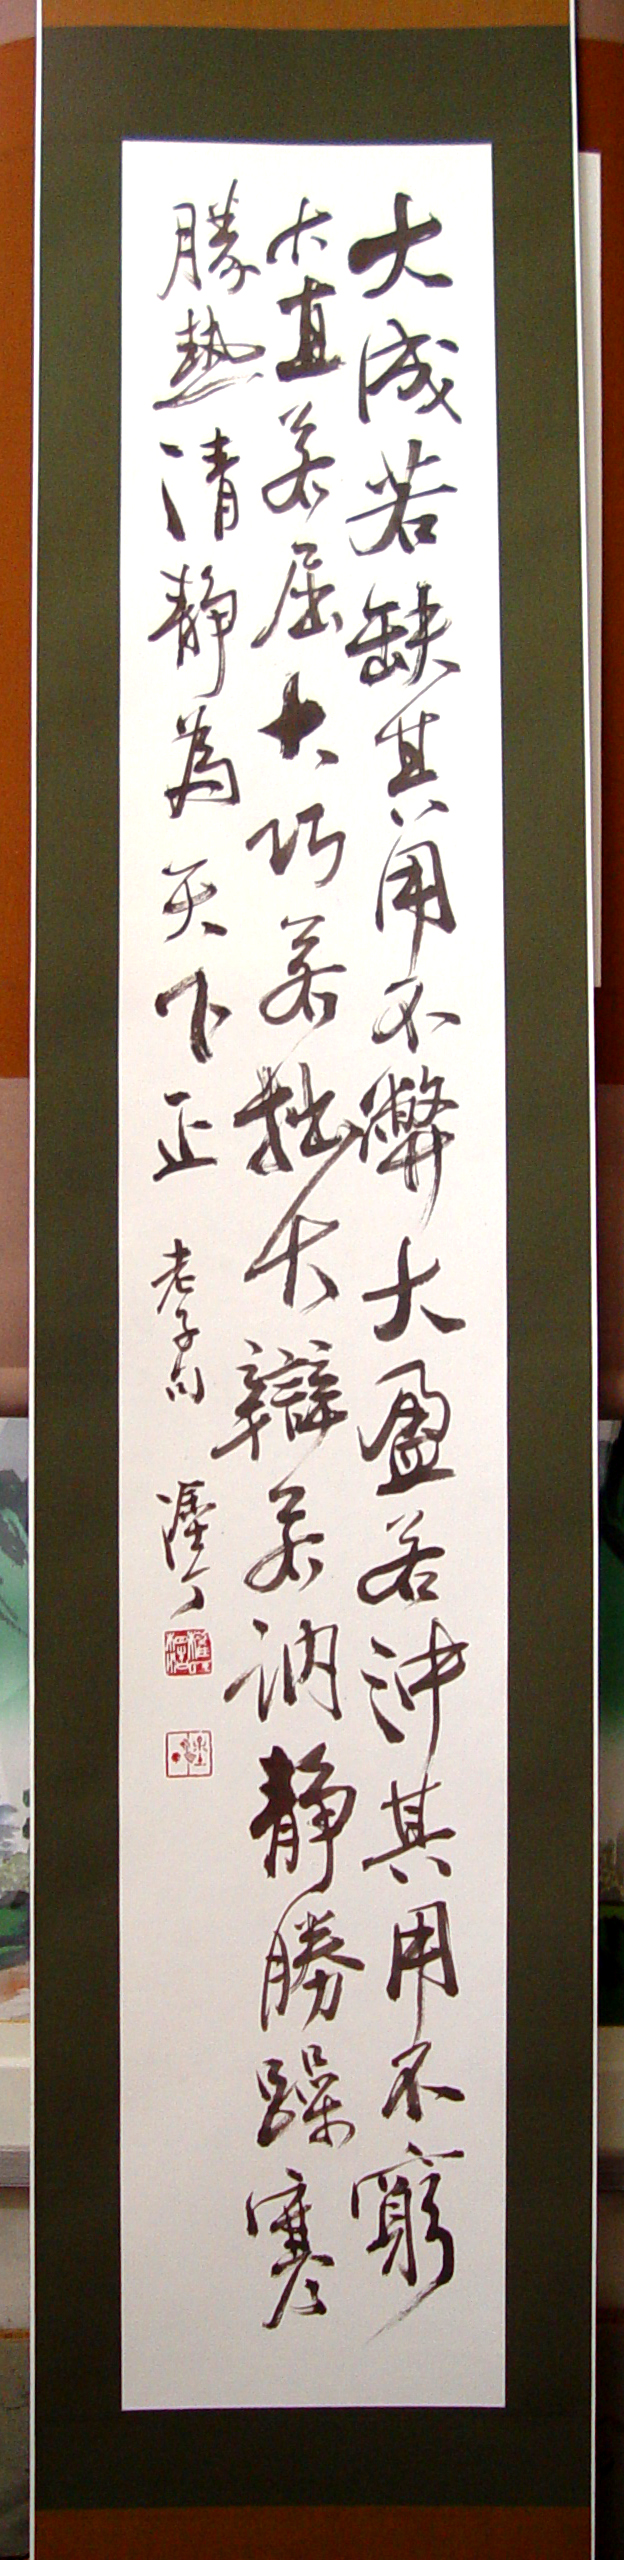 大成若缺其用不弊大盈若沖其用不窮
大直若屈大巧若拙大辯若訥靜勝躁寒
勝熱清靜為天下正
老子句